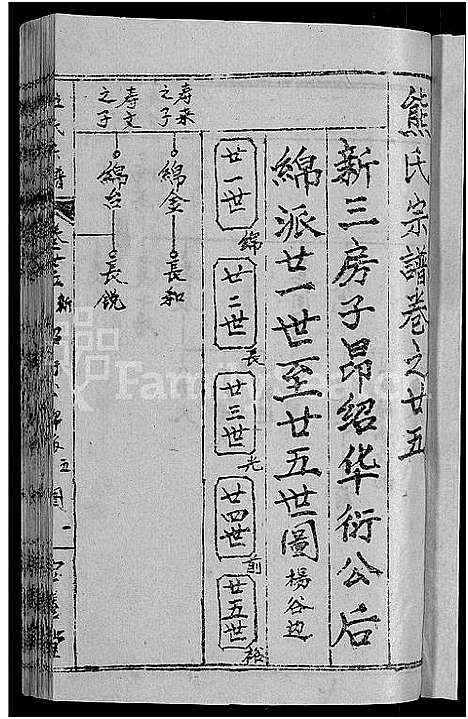 熊氏宗譜卷之廿五
新三房子昂绍华衍公后
綿派廿一世至廿五世圖 楊谷边
廿一世 綿
廿二世 長
廿三世 光
廿四世 前
廿五世 裕
寿来之子 綿金 長和
寿文之子 綿台 長銳
氏宗譜 卷廿五 新
五 圖 一
FamilySearch